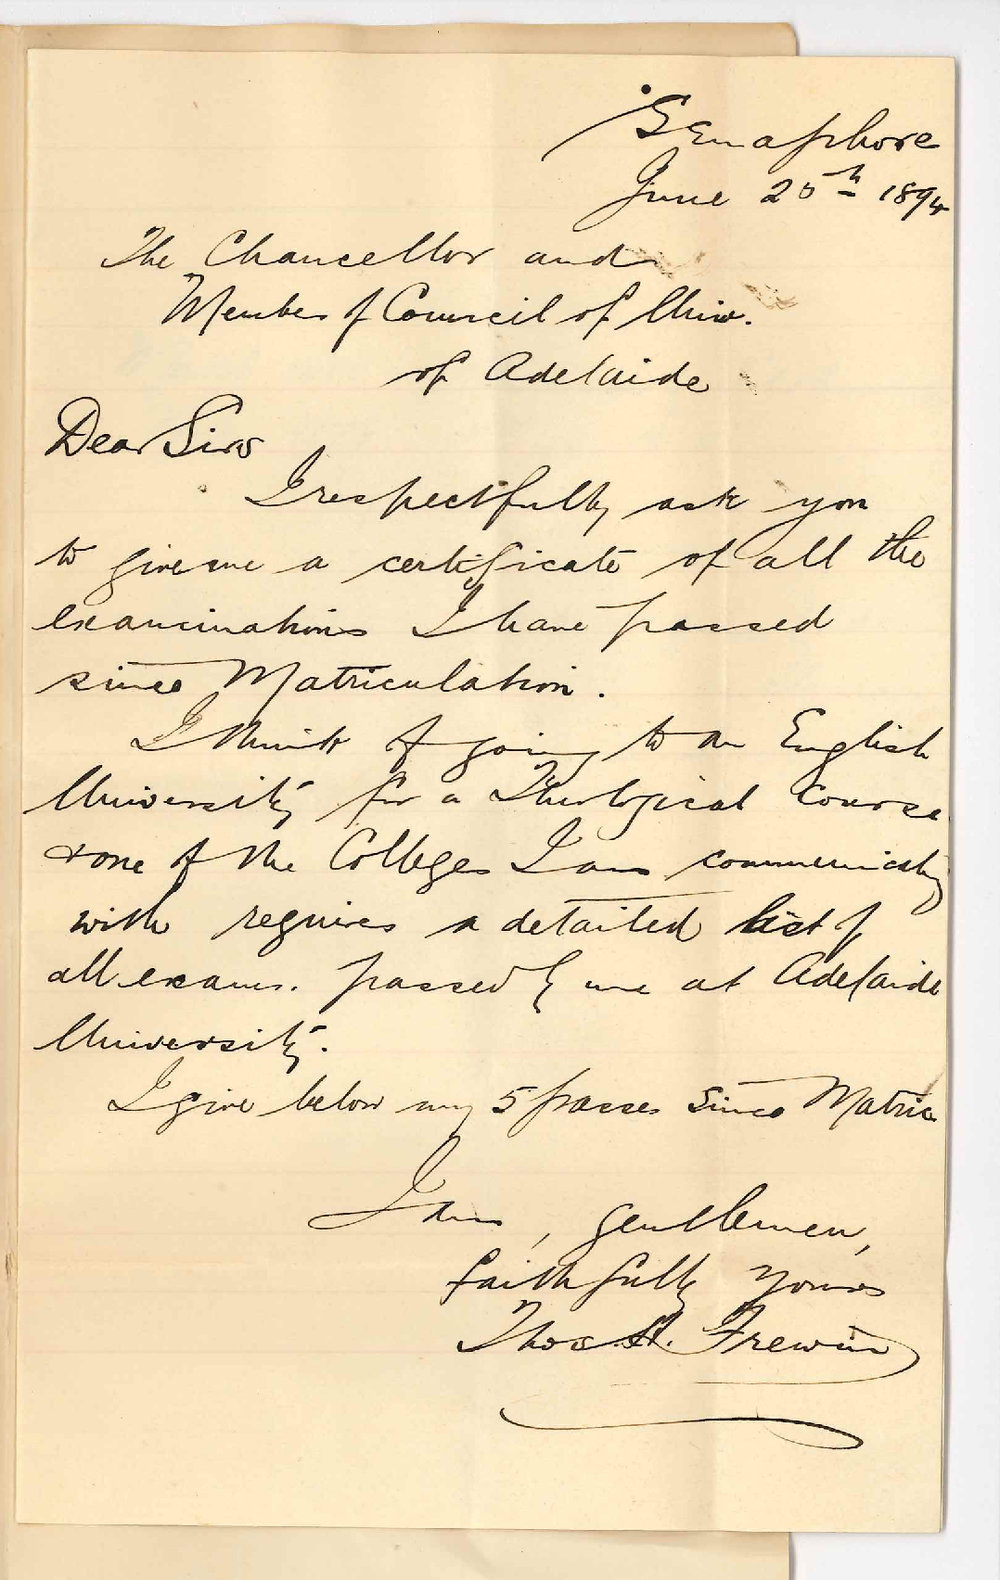 Semaphore
June 25th 1894
The Chancellor and
Member of Council of Univ.
of Adelaide
Dear Sirs
I respectfully ask you
to give me a certificate of all the
examinations I have passed
since Matriculation.
I think of going to an English
University for a Theological Course
& one of the Colleges I am communicating
with requires a detailed list of
all exams. passed by me at Adelaide
University.
I give below my 5 passes since Matric
I am, gentlemen,
faithfully yours
Thos. H. Frewin